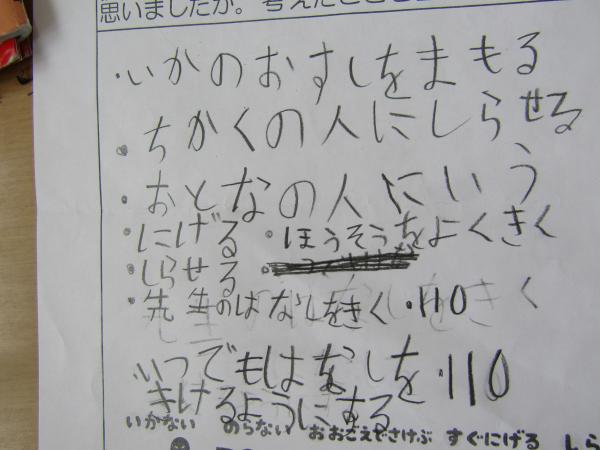 思いましたか。考えたこと
・いかのおすしをまもる
・ちかくの人にしらせる
・おとなの人にいう
・にげる ・ほうそうをよくきく
・しらせる
・先生のはなしをきく ・110
いつでもはなしを ・110
きけるようにする
いかない のらない おおごえでさけぶ すぐにげる しら